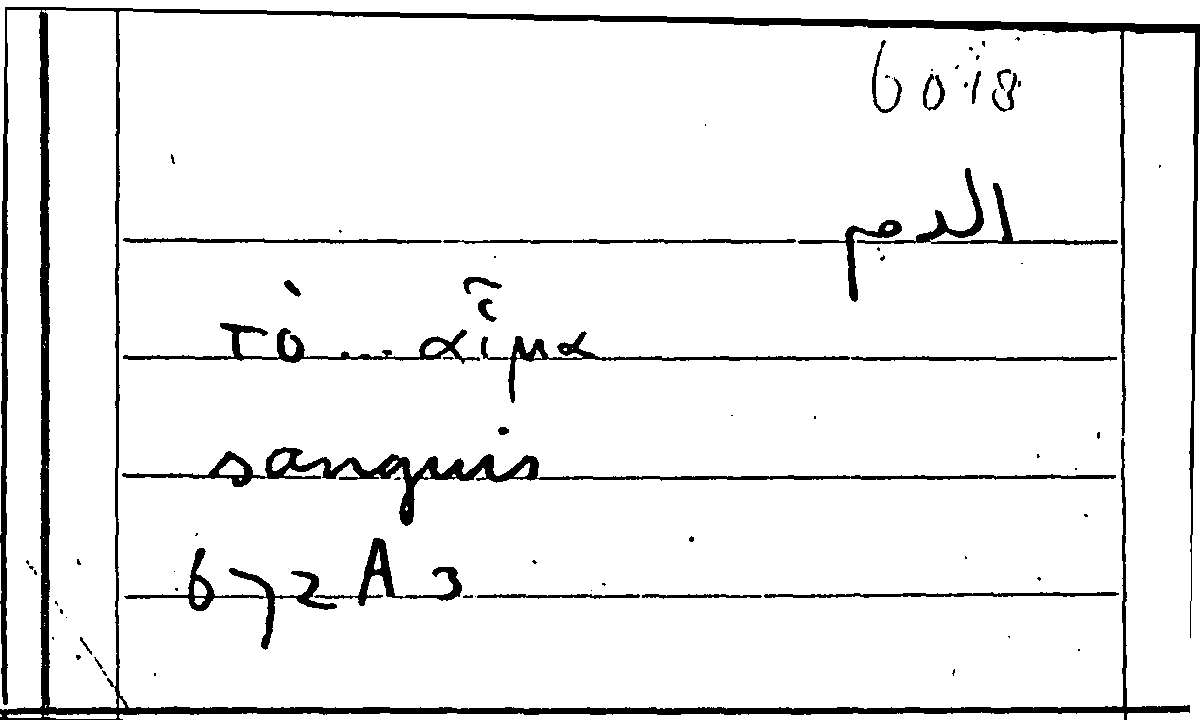 6018
الدم
τὸ ... αἷμα
sanguis
672 A 3